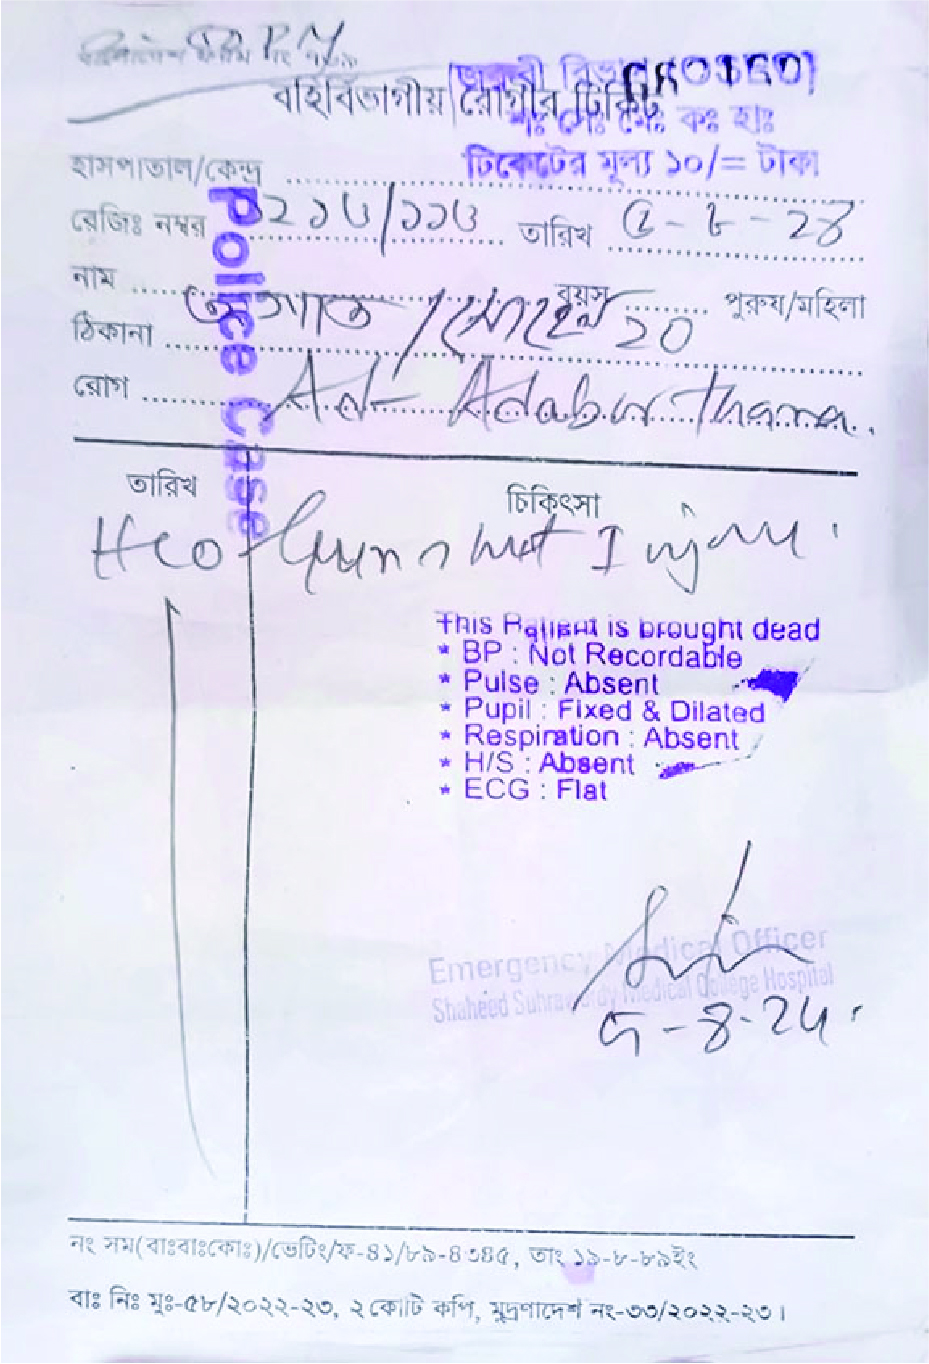 বাংলাদেশ ফরম নং ৭৬৯
বহির্বিভাগীয় রোগীর টিকিট
জরুরী বিভাগ
শঃ সোঃ মেঃ কঃ হাঃ
টিকেটের মূল্য ১০/= টাকা
হাসপাতাল/কেন্দ্র
রেজিঃ নম্বর তারিখ ৫-৮-২৪
নাম অজ্ঞাত /সোহেল বয়স ২০ পুরুষ/মহিলা
ঠিকানা
রোগ Ad- Adabor Thana.
Police Case
তারিখ চিকিৎসা
H/O Gun shot Injury
This Patient is brought dead
* BP : Not Recordable
* Pulse : Absent
* Pupil : Fixed & Dilated
* Respiration : Absent
* H/S : Absent
* ECG : Flat
Emergency Medical Officer
Shaheed Suhrawardy Medical College Hospital
5-8-24.
নং সম(বাঃবাঃকোঃ)/ভেটিং/ফ-৪১/৮৯-৪৩৪৫, তাং ১৯-৮-৮৯ইং
বাঃ নিঃ মুঃ-৫৮/২০২২-২৩, ২ কোটি কপি, মুদ্রণাদেশ নং-৩৩/২০২২-২৩।